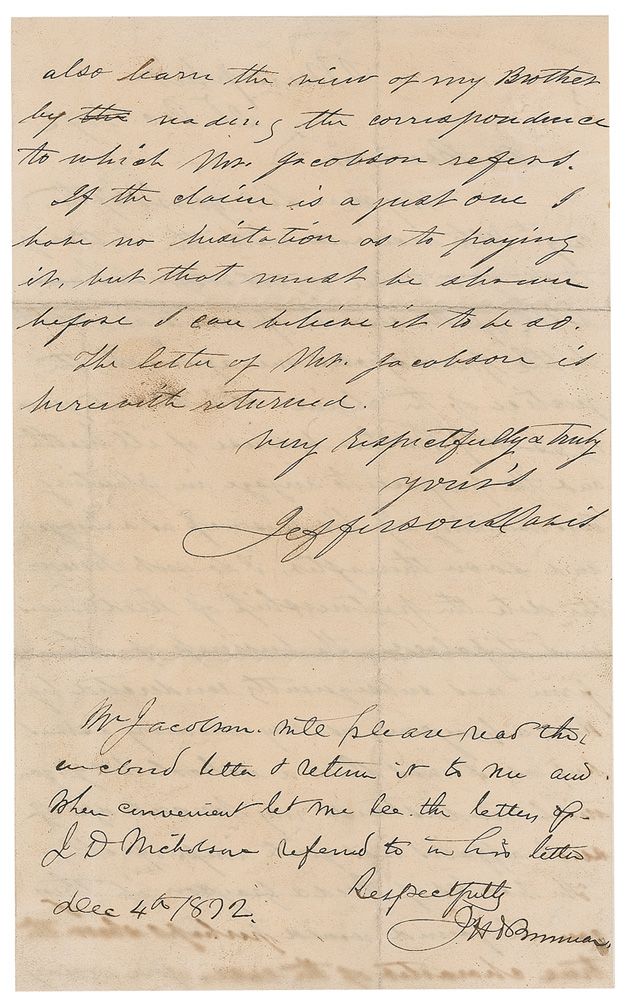 also learn the view of my Brother
by the reading the correspondence
to which Mr. Jacobson refers.
If the claim is a just one I
have no hesitation as to paying
it, but that must be shown
before I can believe it to be so.
The letter of Mr. Jacobson is
herewith returned.
Very respectfully & truly
yours
Jefferson Davis
Mr Jacobson. will please read the
enclosed letter & return it to me and
when convenient let me see the letters of
J D Nicholson referred to in his letter
Respectfully
Dec 4th 1872.